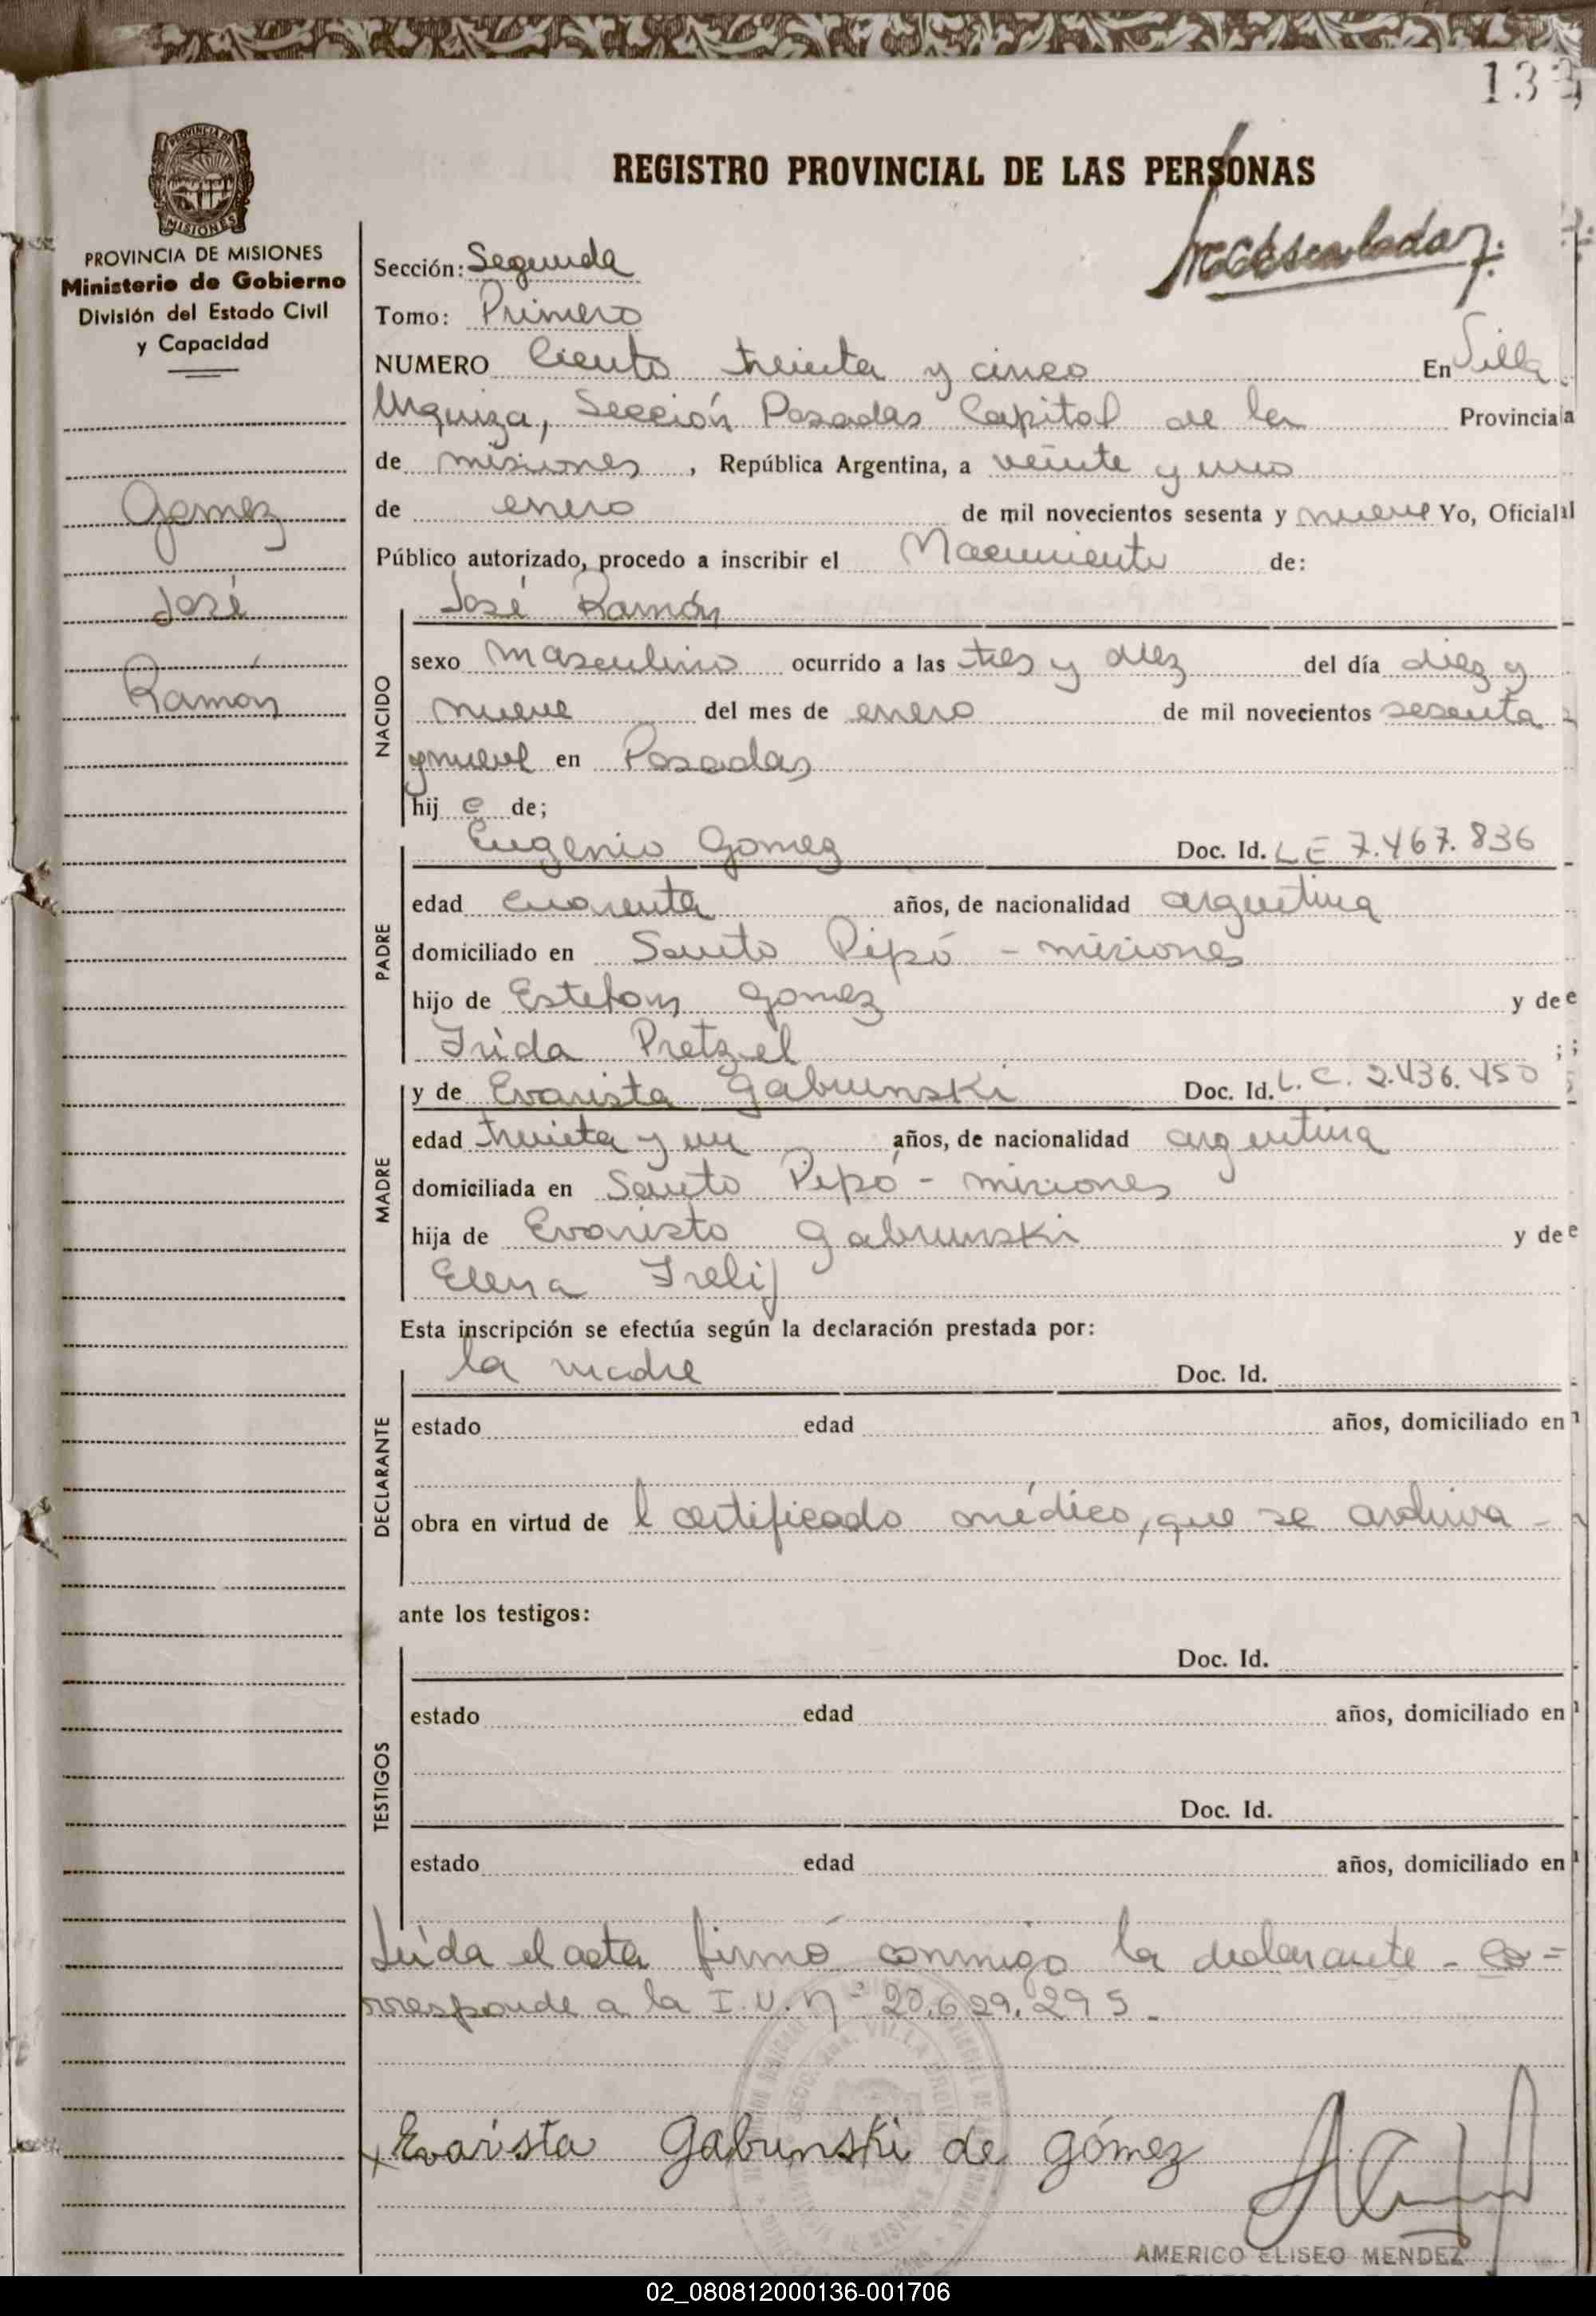 133
PROVINCIA DE MISIONES
MISIONES
PROVINCIA DE MISIONES
Ministerio de Gobierno
División del Estado Civil
y Capacidad
Gomez
José
Ramón
REGISTRO PROVINCIAL DE LAS PERSONAS
Sección: Segunda
Tomo: Primero
NUMERO Ciento treinta y cinco En Villa
Urquiza, Sección Posadas Capital de la Provincia
de misiones, República Argentina, a veinte y uno
de enero de mil novecientos sesenta y nueve Yo, Oficial
Público autorizado, procedo a inscribir el Nacimiento de:
NACIDO
José Ramón
sexo masculino ocurrido a las tres y diez del día diez y
nueve del mes de enero de mil novecientos sesenta
y nueve en Posadas
hij o de;
PADRE
Eugenio Gomez Doc. Id. LE 7.467.836
edad cuarenta años, de nacionalidad argentina
domiciliado en Santo Pipó - misiones
hijo de Esteban Gomez y de
Frida Pretzel ;
MADRE
y de Evarista Gabrunski Doc. Id. L.C. 2.436.450
edad treinta y un años, de nacionalidad argentina
domiciliada en Santo Pipó - misiones
hija de Evaristo Gabrunski y de
Elena Frelij
Esta inscripción se efectúa según la declaración prestada por:
DECLARANTE
la madre Doc. Id.
estado edad años, domiciliado en
obra en virtud de l certificado médico, que se archiva -
ante los testigos:
TESTIGOS
Doc. Id.
estado edad años, domiciliado en
Doc. Id.
estado edad años, domiciliado en
Leída el acta firmó conmigo la declarante - Co=
rresponde a la I.U. nº 20.629.295 -
x Evarista Gabrunski de gómez
AMERICO ELISEO MENDEZ
02_080812000136-001706